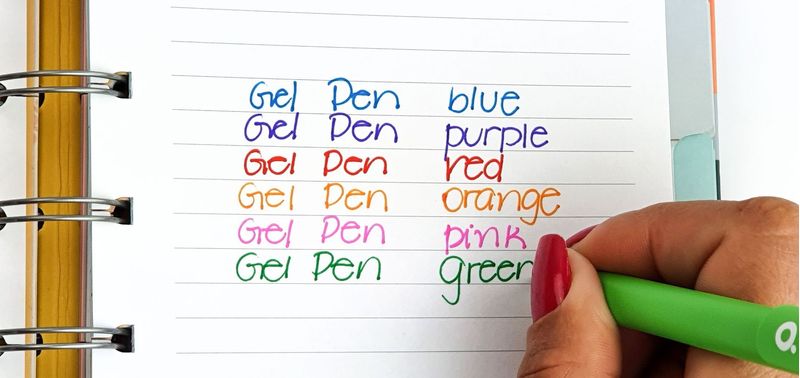 Gel Pen blue
Gel Pen purple
Gel Pen red
Gel Pen orange
Gel Pen pink
Gel Pen green